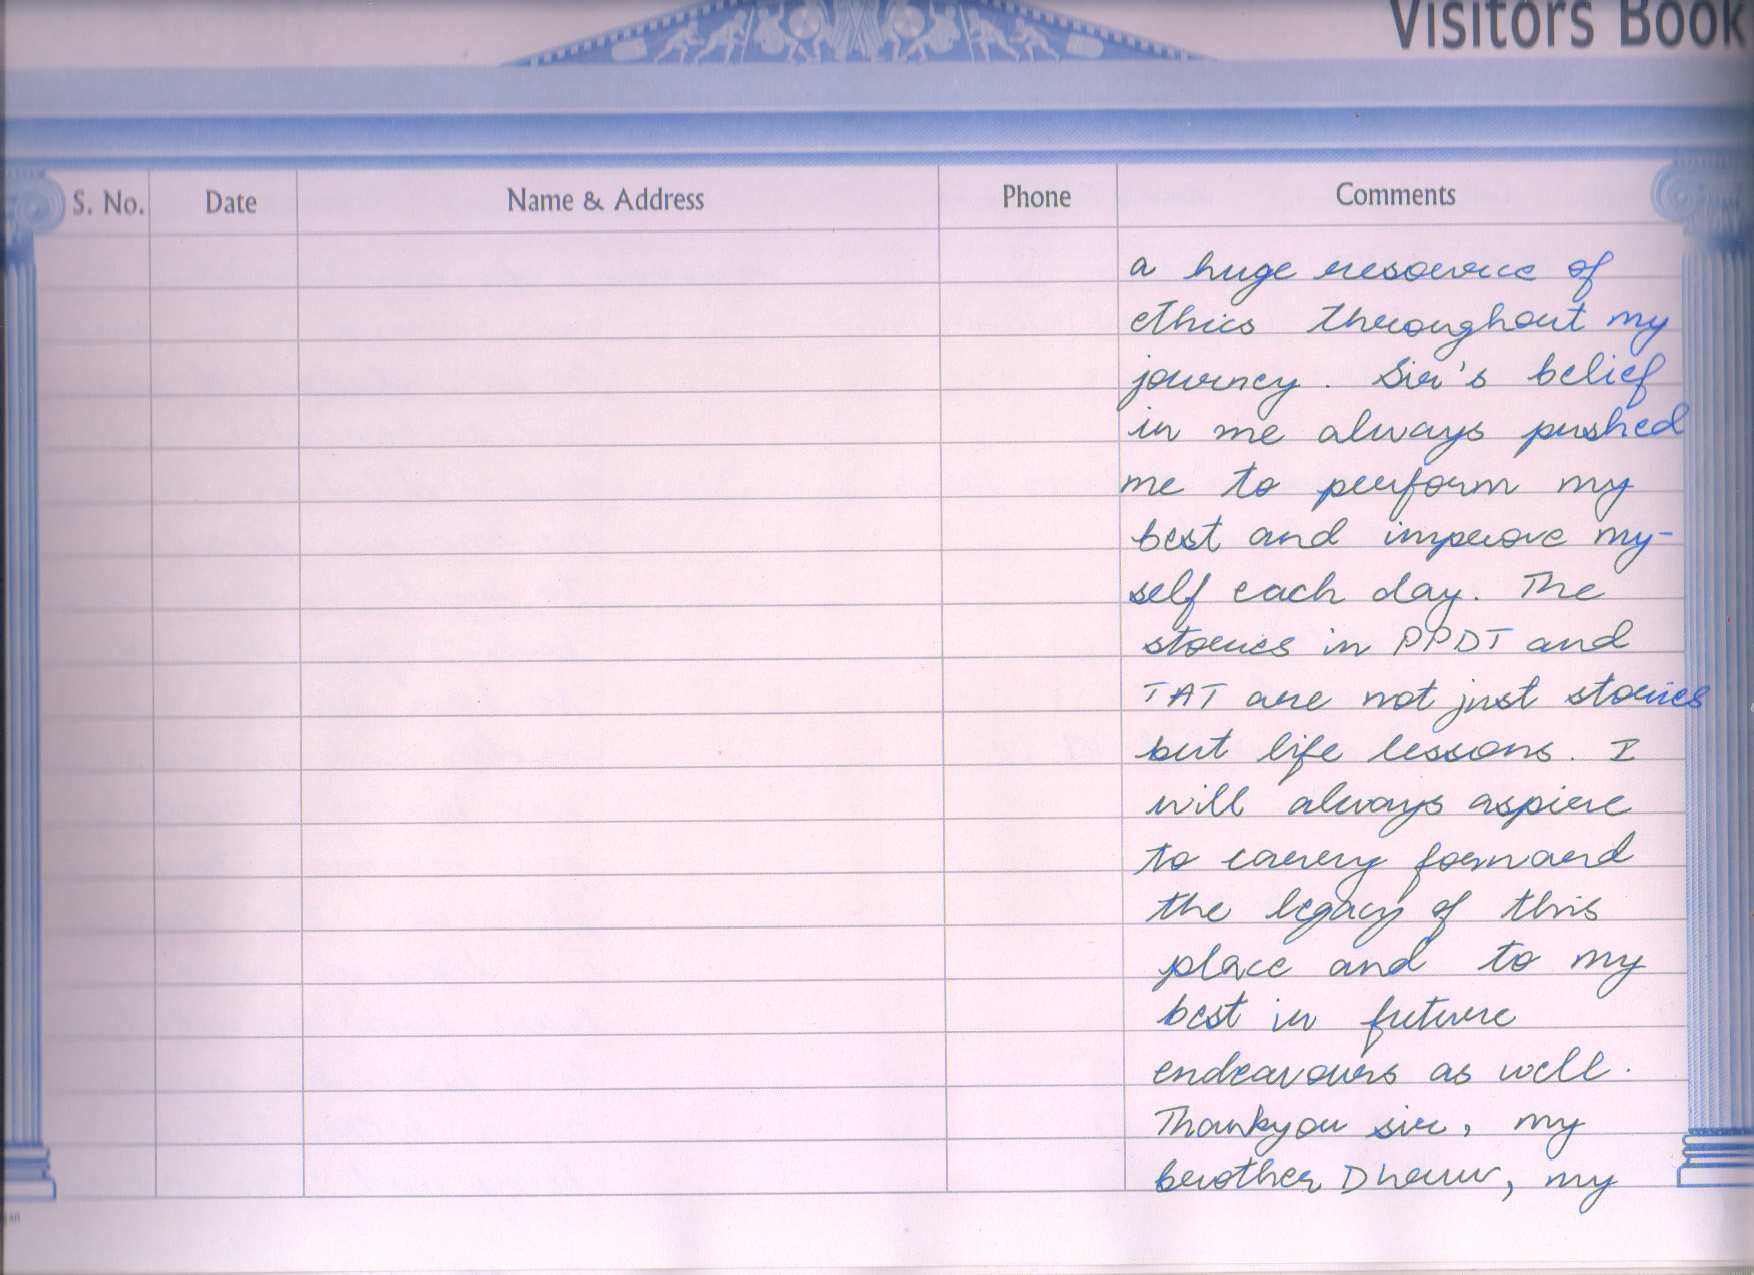 Visitors Book
S. No. Date Name & Address Phone Comments
a huge resource of
ethics throughout my
journey. Sir's belief
in me always pushed
me to perform my
best and improve my-
self each day. The
stories in PPDT and
TAT are not just stories
but life lessons. I
will always aspire
to carry forward
the legacy of this
place and to my
best in future
endeavours as well.
Thankyou sir, my
brother Dhruv, my